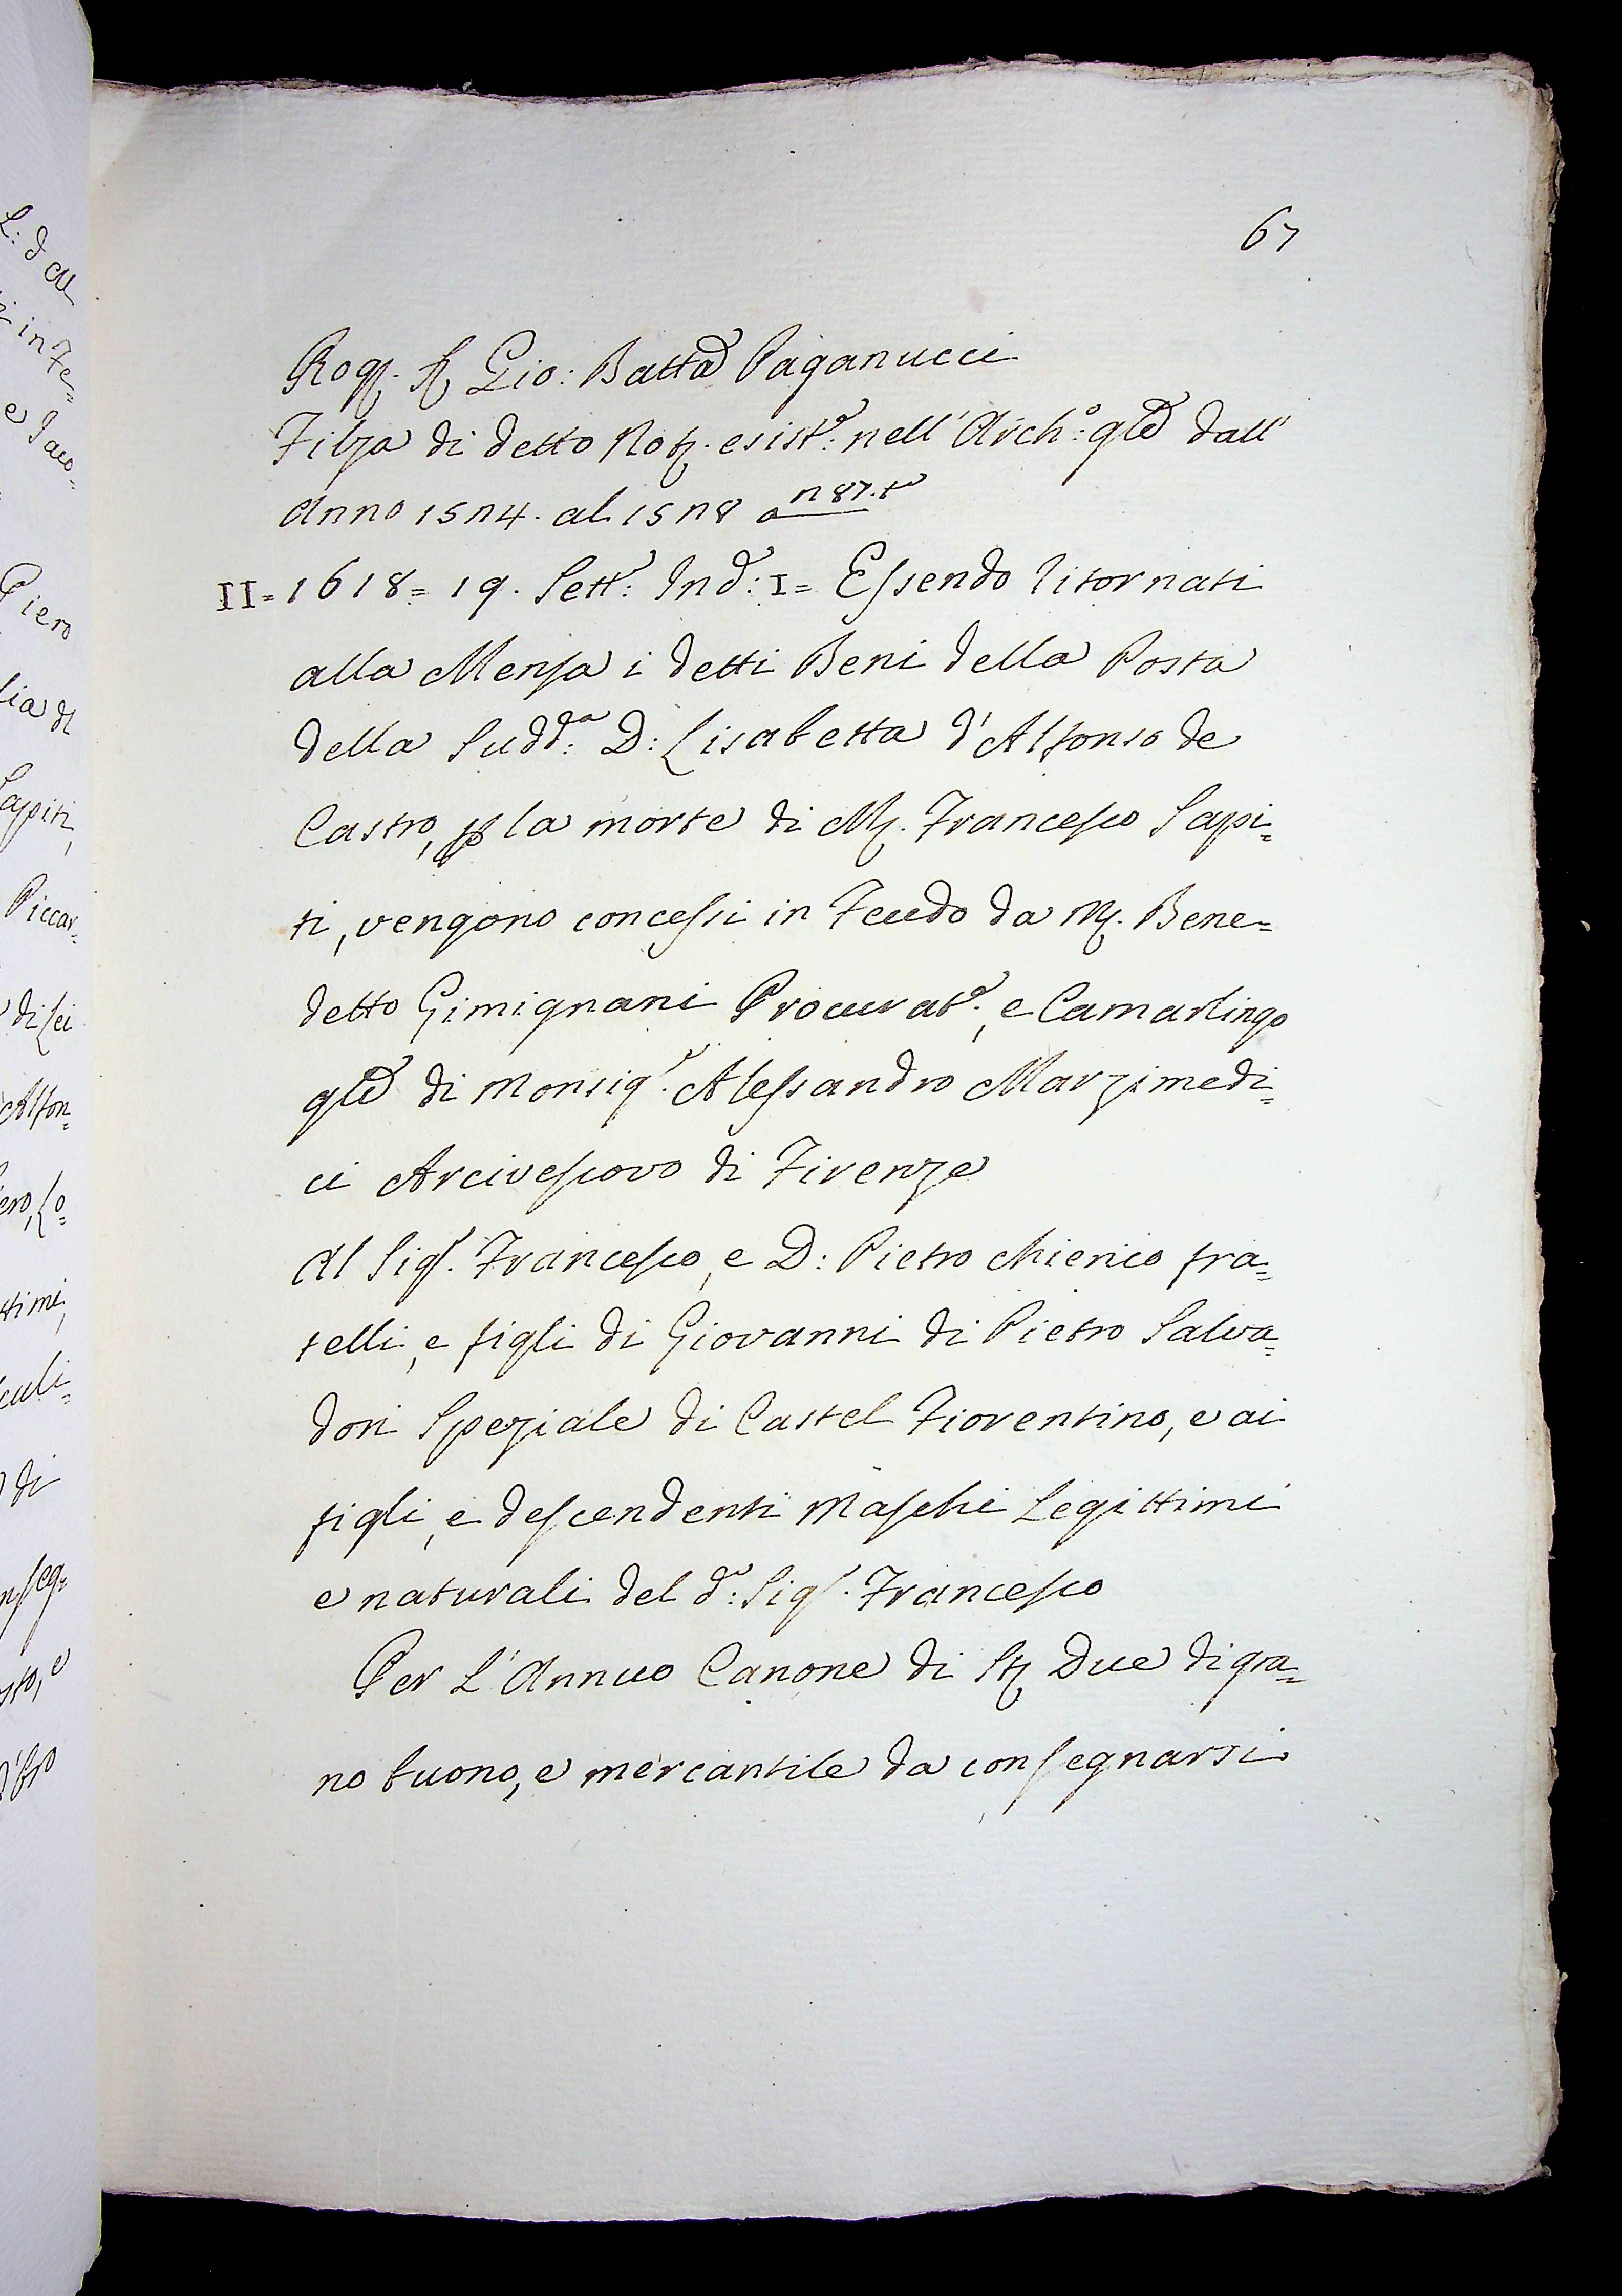 67
Rog. S. Gio: Batta Paganucci
Filza di detto Not. esist.e nell' Arch:o gle dall'
Anno 1574. al 1578 a n 87. t
II = 1618 = 19. Sett.e: Ind.e: I = Essendo ritornati
alla Mensa i detti Beni della Posta
della Sudd:a D: Lisabetta d'Alfonso de
Castro, p la morte di M. Francesco Sapi=
ti, vengono concessi in Feudo da M. Bene=
detto Gimignani Procurat.e, e Camarlingo
gle di Monsig.r Alessandro Marzimedi=
ci Arcivescovo di Firenze
Al Sig.r Francesco, e D: Pietro Chierico fra=
telli, e figli di Giovanni di Pietro Salva=
dori Speziale di Castel Fiorentino, e ai
figli, e descendenti Maschi Legittimi
e naturali del d.o: Sig.r Francesco
Per L'Annuo Canone di St. Due di gra=
no buono, e mercantile da consegnarsi
L: d
in Fe=
e Jaco=
Piero
lia di
Sapiti,
Piccar=
di Lei
Alfon=
ero, Lo=
ttimi,
di